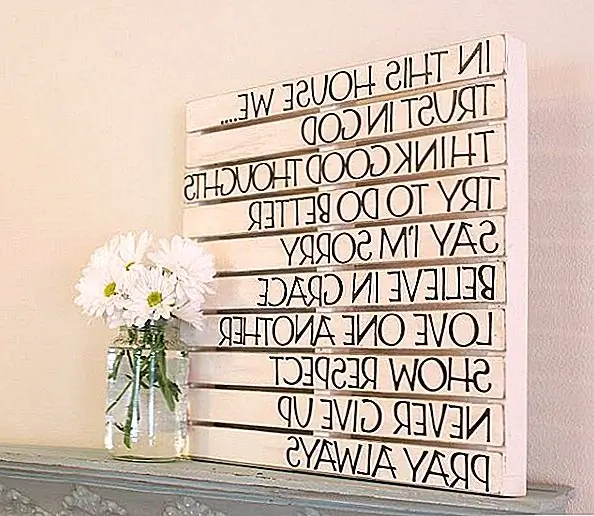 IN THIS HOUSE WE....
TRUST IN GOD
THINK GOOD THOUGHTS
TRY TO DO BETTER
SAY I'M SORRY
BELIEVE IN GRACE
LOVE ONE ANOTHER
SHOW RESPECT
NEVER GIVE UP
PRAY ALWAYS